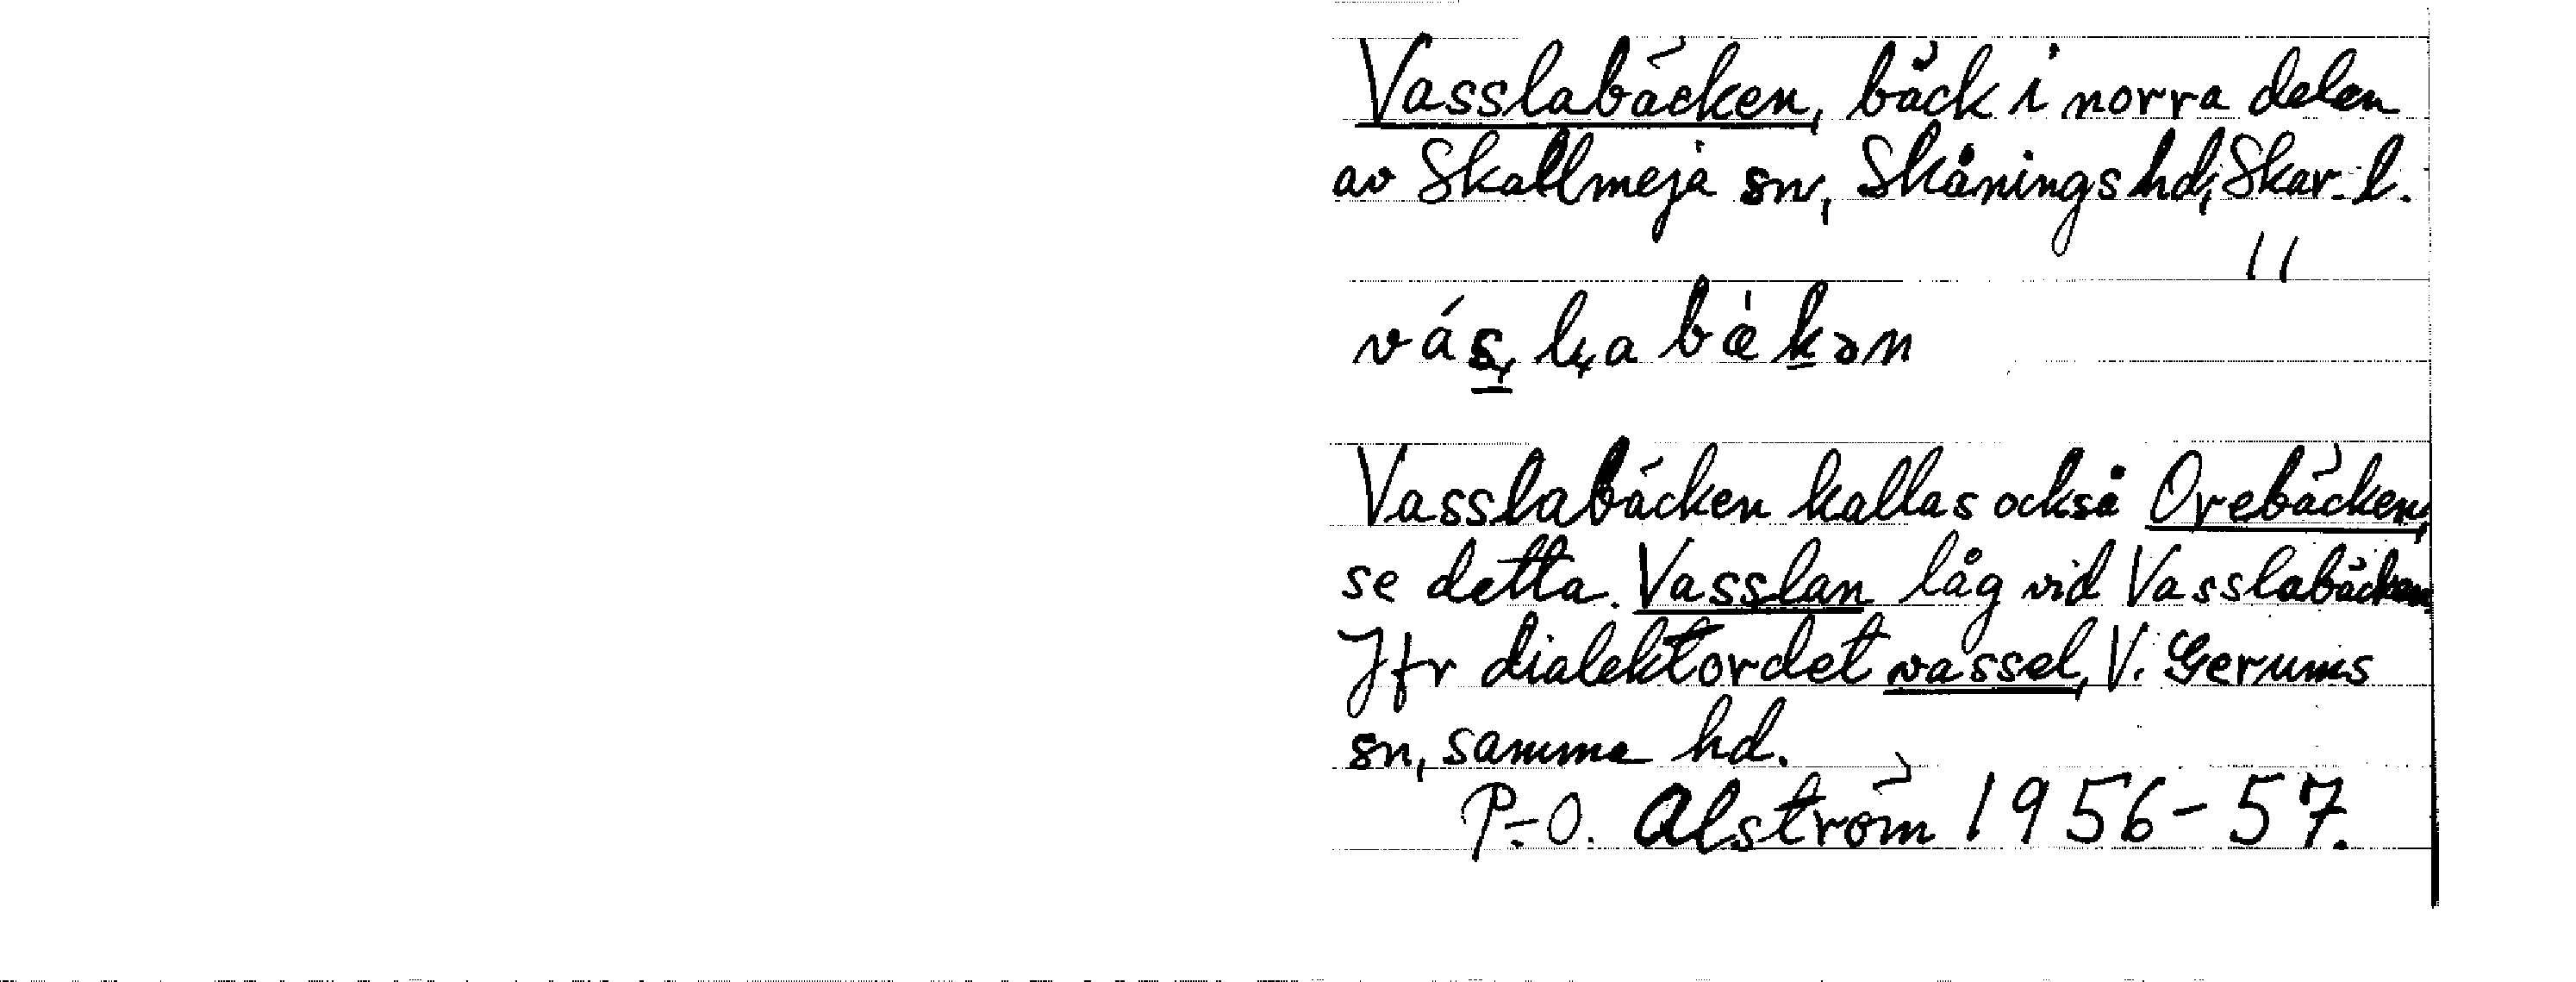 Vasslabäcken, bäck i norra delen
av Skallmeja sn, Skånings hd, Skar. l.
vás̲l̥a bæ̀k̲ən
Vasslabäcken kallas också Orebäcken,
se detta. Vasslan låg vid Vasslabäcken
Jfr dialektordet vassel, V. Gerums
sn, samma hd.
P.-O. Alström 1956-57.